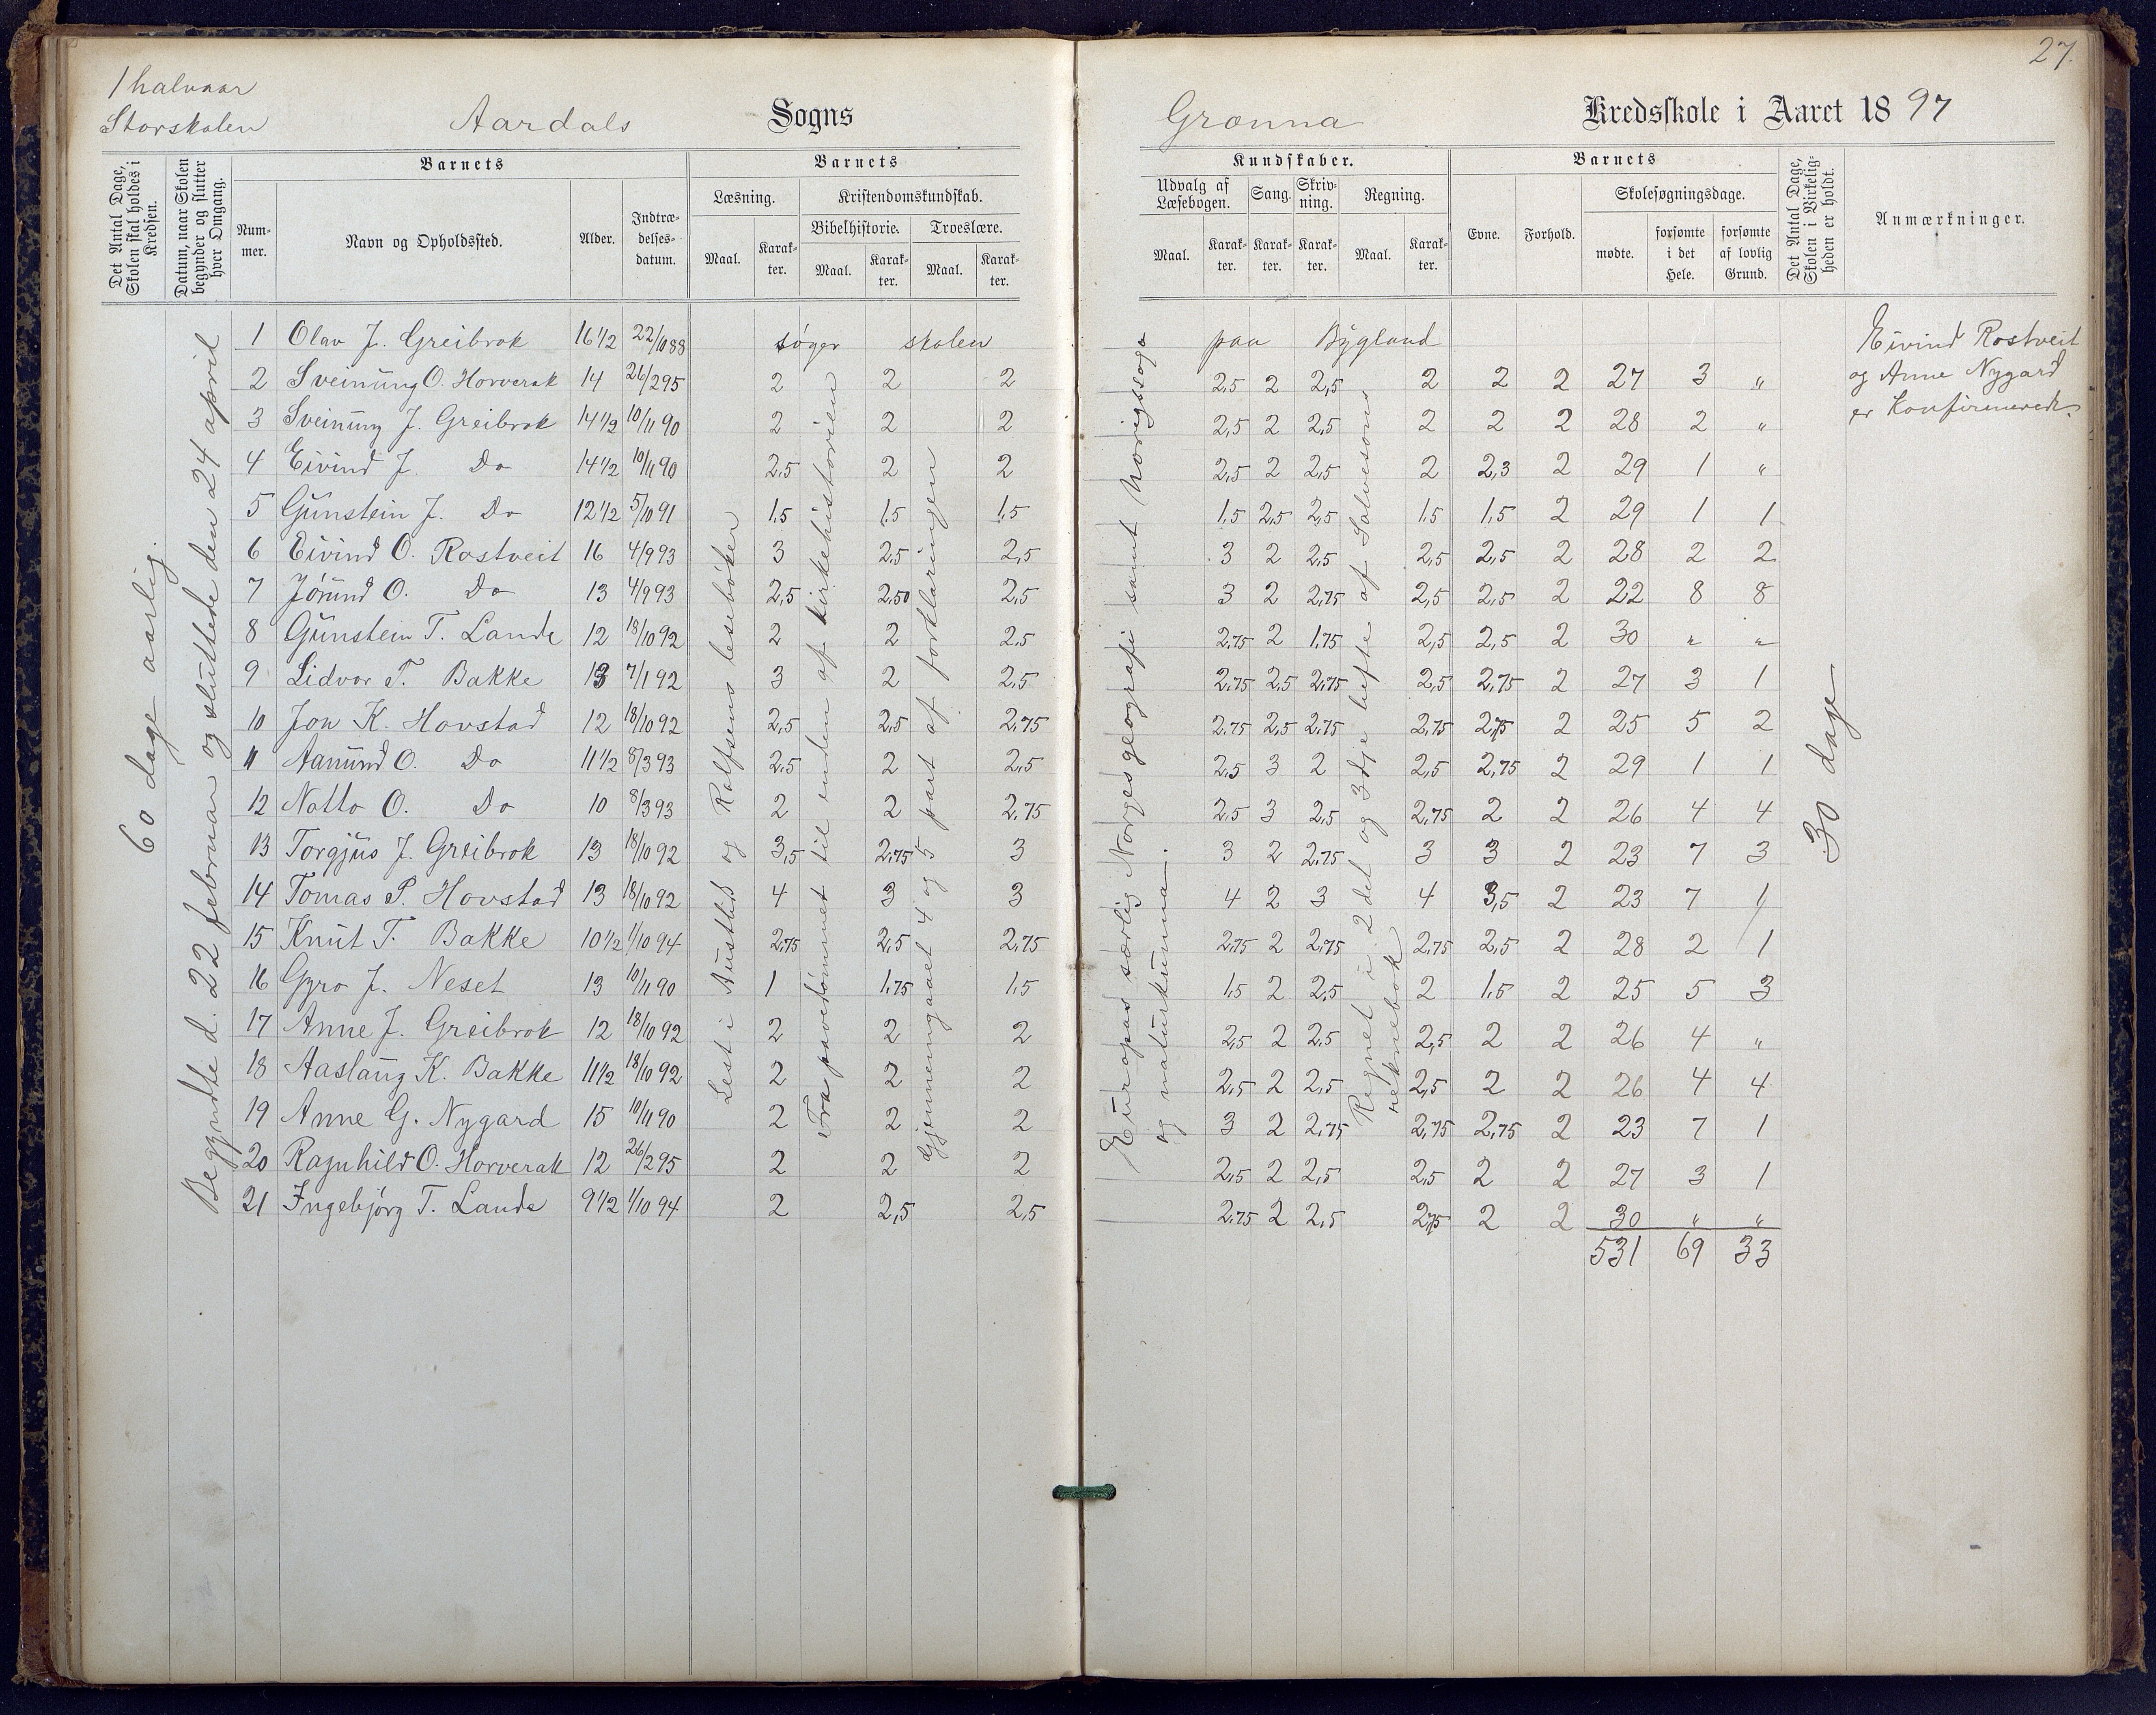 27.
1 halvaar
Storskolen
Aardals Sogns
Grønna Kredsskole i Aaret 1897
Det Antal Dage, Skolen skal holdes i Kredsen.
Datum, naar Skolen begynder og slutter hver Omgang.
Barnets
Nummer.
Navn og Opholdssted.
Alder.
Indtrædelsesdatum.
Barnets
Læsning.
Maal.
Karakter.
Kristendomskundskab.
Bibelhistorie.
Maal.
Karakter.
Troeslære.
Maal.
Karakter.
Kundskaber.
Udvalg af Læsebogen.
Maal.
Karakter.
Sang.
Karakter.
Skrivning.
Karakter.
Regning.
Maal.
Karakter.
Barnets
Evne.
Forhold.
Skolesøgningsdage.
mødte.
forsømte i det Hele.
forsømte af lovlig Grund.
Det Antal Dage, Skolen i Virkeligheden er holdt.
Anmærkninger.
60 dage aarlig.
Begyndte d. 22 februar og sluttede den 24 april
1 Olav J. Greibrok 16 1/2 22/10 88 søger skolen paa Bygland
2 Sveinung O. Horverak 14 26/2 95 2 2 2 2,5 2 2,5 2 2 2 27 3 "
3 Sveinung J. Greibrok 14 1/2 10/11 90 2 2 2 2,5 2 2,5 2 2 2 28 2 "
4 Eivind J. Do 14 1/2 10/11 90 2,5 2 2 2,5 2 2,5 2 2,3 2 29 1 "
5 Gunstein J. Do 12 1/2 5/10 91 1,5 1,5 1,5 1,5 2,5 2,5 1,5 1,5 2 29 1 1
6 Eivind O. Rostveit 16 4/9 93 3 2,5 2,5 3 2 2,5 2,5 2,5 2 28 2 2
7 Jørund O. Do 13 4/9 93 2,5 2,50 2,5 3 2 2,75 2,5 2,5 2 22 8 8
8 Gunstein T. Lande 12 18/10 92 2 2 2,5 2,75 2 1,75 2,5 2,5 2 30 " "
9 Lidvor T. Bakke 13 7/1 92 3 2 2,5 2,75 2,5 2,75 2,5 2,75 2 27 3 1
10 Jon K. Hovstad 12 18/10 92 2,5 2,5 2,75 2,75 2,5 2,75 2,75 2,75 2 25 5 2
11 Aamund O. Do 11 1/2 8/3 93 2,5 2 2,5 2,5 3 2 2,5 2,75 2 29 1 1
12 Natto O. Do 10 8/3 93 2 2 2,75 2,5 3 2,5 2,75 2 2 26 4 4
13 Torgjus J. Greibrok 13 18/10 92 3,5 2,75 3 3 2 2,75 3 3 2 23 7 3
14 Tomas P. Hovstad 13 18/10 92 4 3 3 4 2 3 4 3,5 2 23 7 1
15 Knut T. Bakke 10 1/2 1/10 94 2,75 2,5 2,75 2,75 2 2,75 2,75 2,5 2 28 2 1
16 Gyro J. Neset 13 10/11 90 1 1,75 1,5 1,5 2 2,5 2 1,5 2 25 5 3
17 Anne J. Greibrok 12 18/10 92 2 2 2 2,5 2 2,5 2,5 2 2 26 4 "
18 Aaslaug K. Bakke 11 1/2 18/10 92 2 2 2 2,5 2 2,5 2,5 2 2 26 4 4
19 Anne G. Nygard 15 10/11 90 2 2 2 3 2 2,75 2,75 2,75 2 23 7 1
20 Ragnhild O. Horverak 12 26/2 95 2 2 2 2,5 2 2,5 2,5 2 2 27 3 1
21 Ingebjørg T. Lande 9 1/2 1/10 94 2 2,5 2,5 2,75 2 2,5 2,75 2 2 30 " "
531 69 33
Lest i Austlid og Rolfsens lesebøker
Fra pavedømmet til enden af kirkehistorien
Gjennemgaaet 4 og 5 part af forklaringen
Europas særlig Norges geografi samt Norigssoga
og naturkunna.
Regnet i 2det og 3dje hefte af Solvesons
reknebok
30 dage
Eivind Rostveit
og Anne Nygard
er konfirmerede.